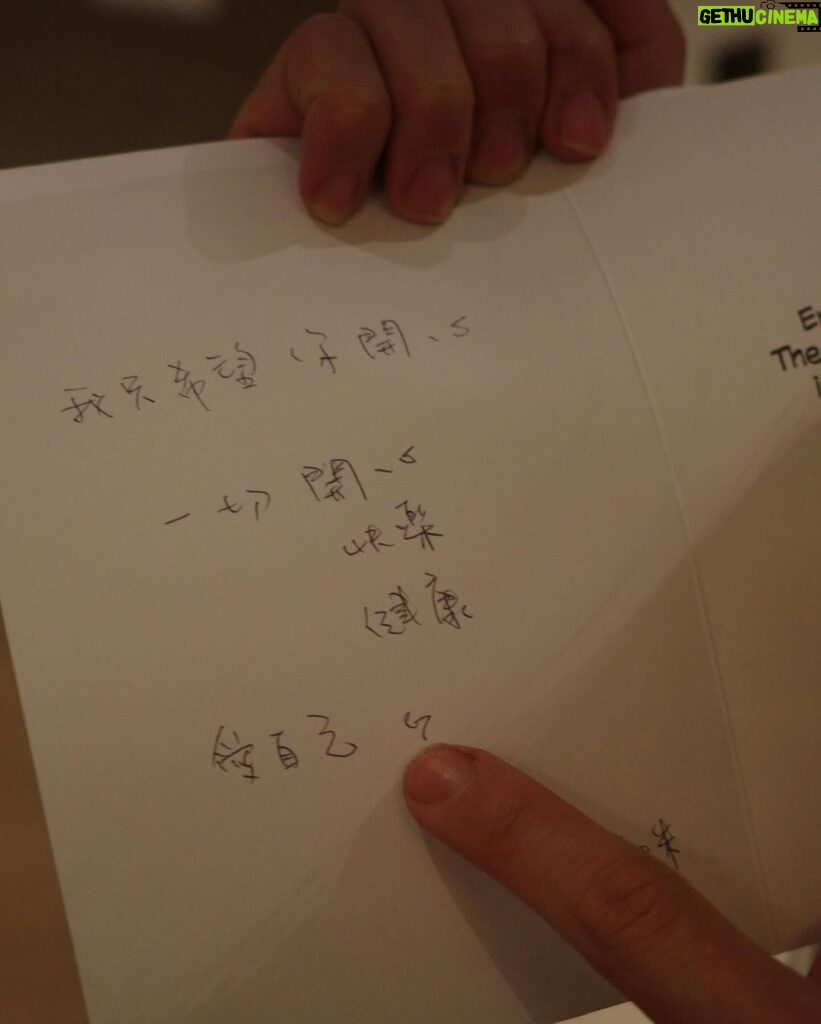 GETHUCINEMA
我只希望你開心
一切開心
快樂
健康
愛自己
En
The
i
米